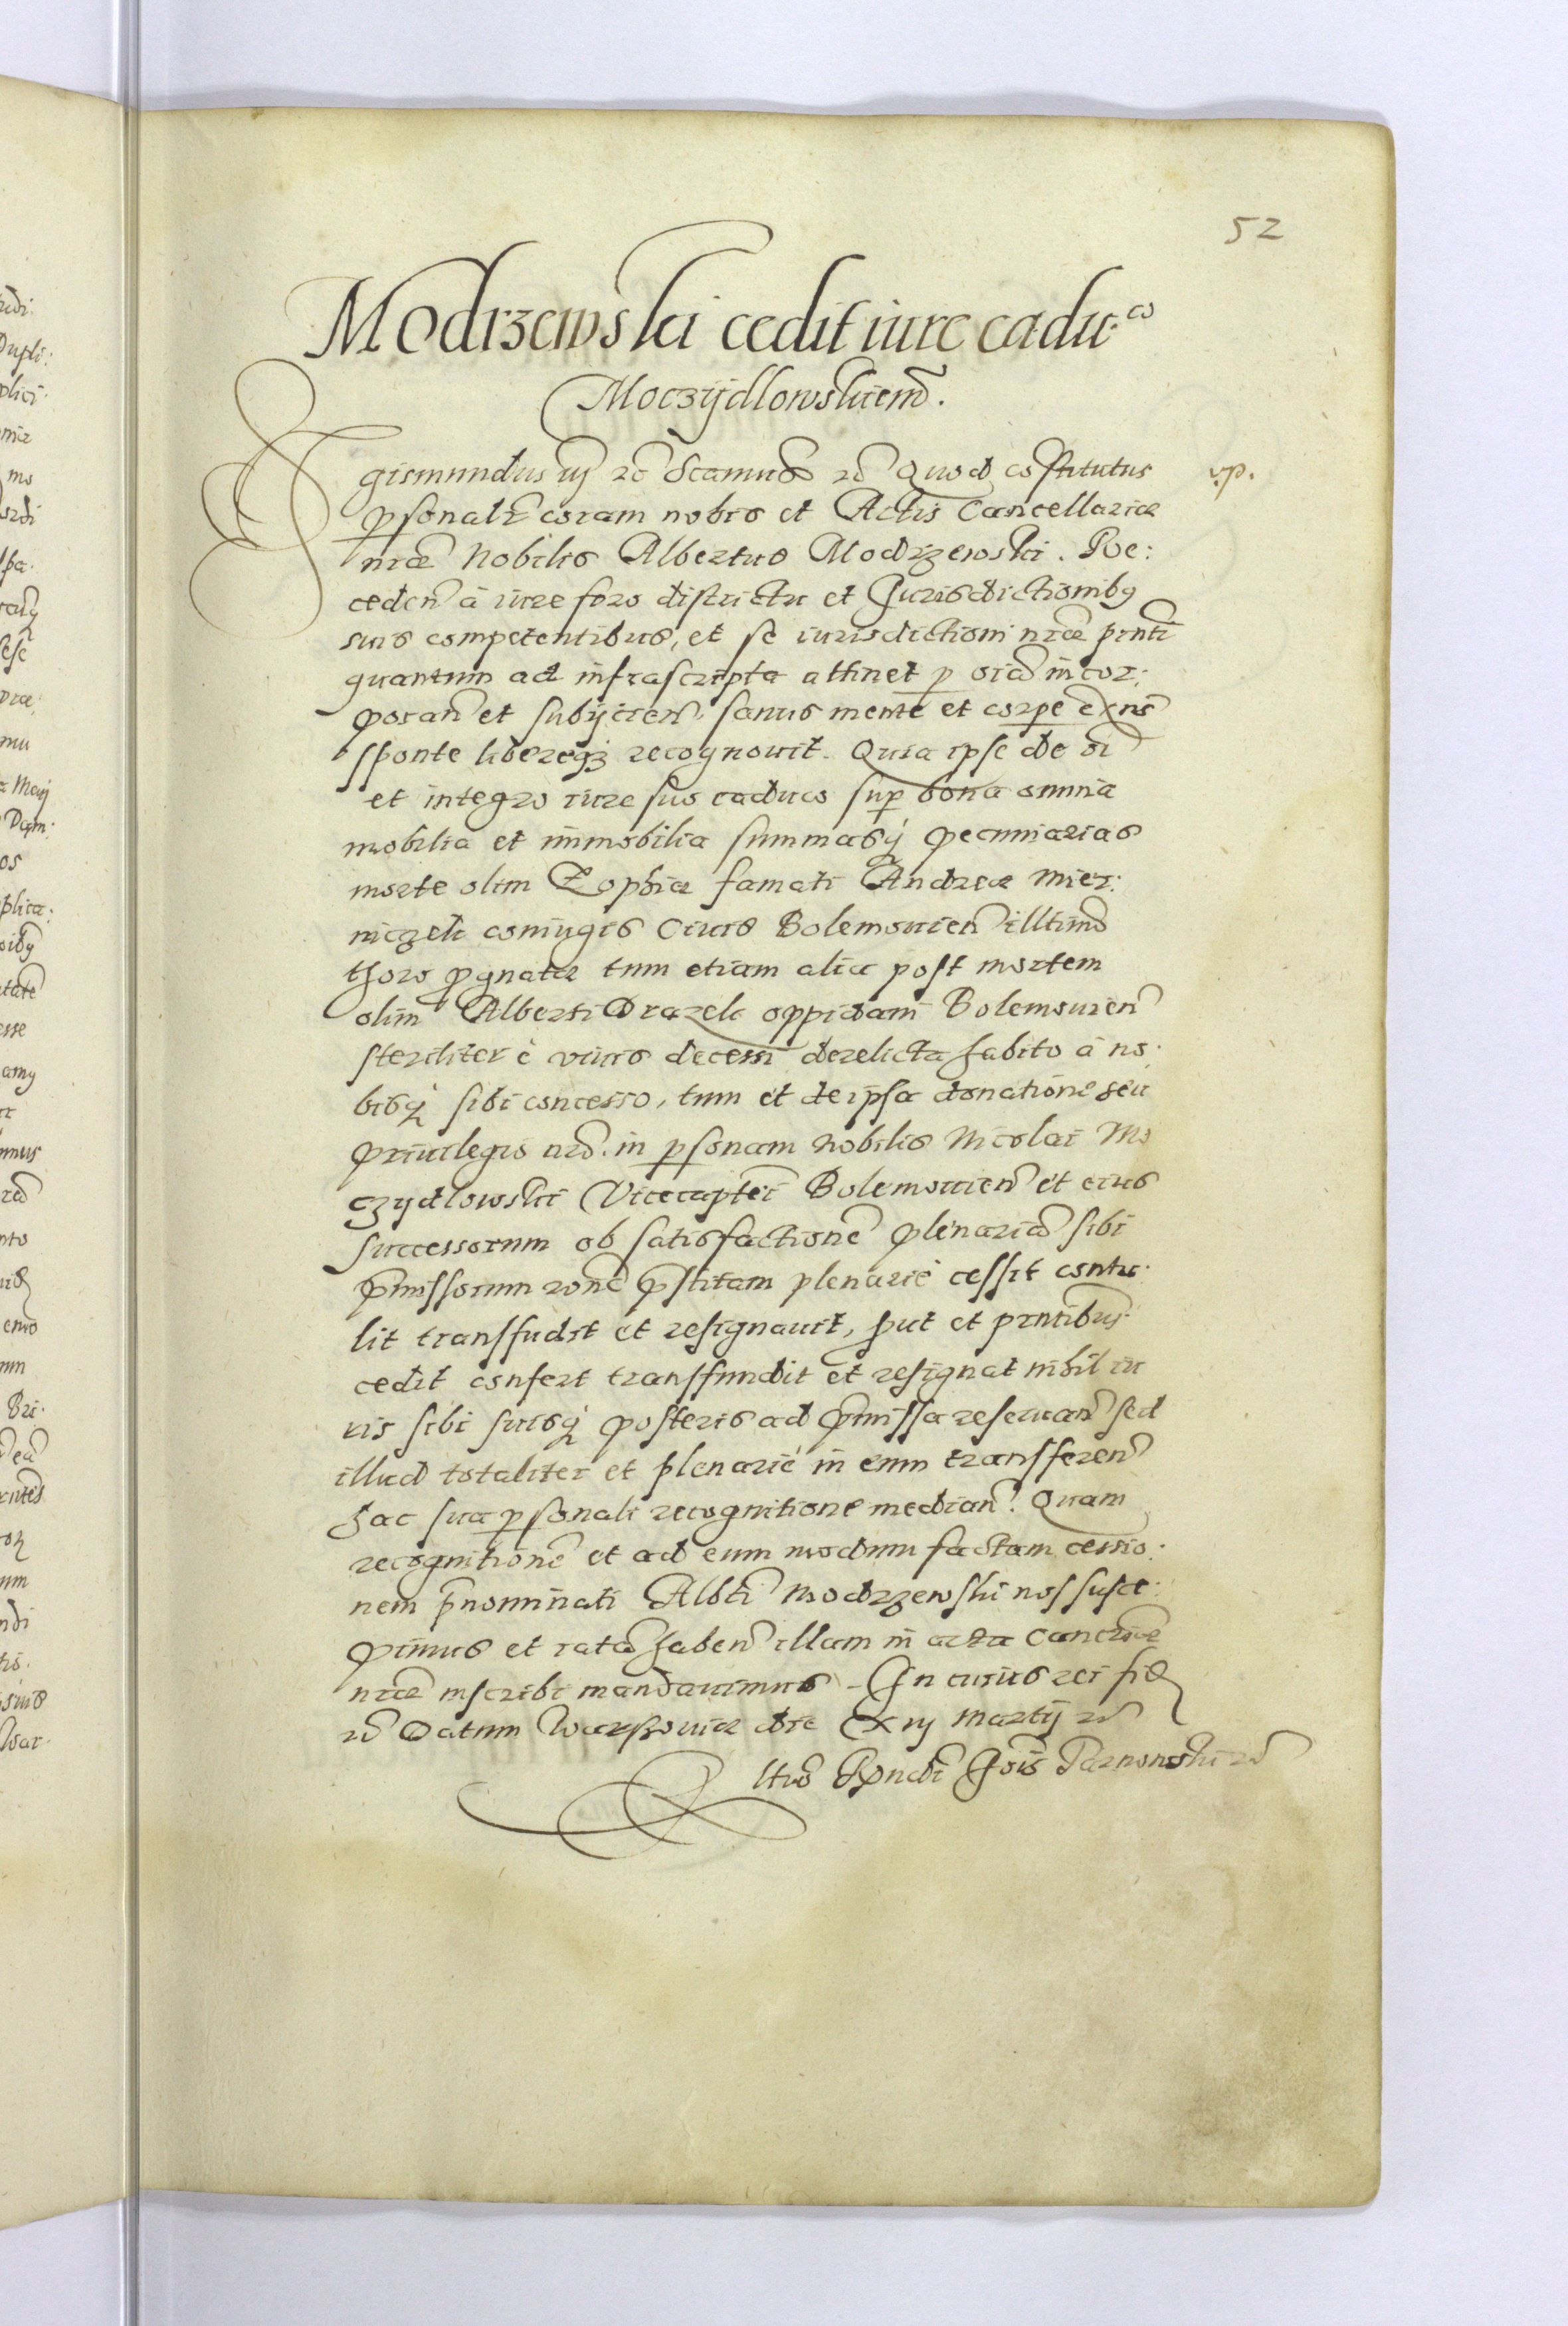 52
Modrzewski cedit iure cadu:co
Moczÿdlowskiem̃.
Sigismundus iij ꝛc̃ Scamus ꝛc̃ Quod cõstitutus
v.p.
ꝑsonalr̃ coram nobis et Actis Cancellariæ
nr̃æ Nobilis Albertus Modrzewski. Re:
ceden̄ à iure foro districtu et Jurisdictionibꝯ
suis competentibus, et se iurisdictioni nr̃æ pr̃nti
quantum ad infrascripta attinet ꝑ oĩa incor:
poran̄ et subijcien̄, sanus mente et corpe exns̃
sponte libereqꝫ recognouit. Quia ipse de oĩ
et integro iure suo caduco suꝑ bona omnia
mobilia et immobilia summasqꝫ pecuniarias
morte olim Zophiæ famati Andreæ Mier:
niczek coniugis Ciuis Bolemouien̄ illtimo
thoro ꝓgnatæ tum etiam alia post mortem
olim Alberti Drazek oppidani Bolemouien̄
steriliter è viuis decessi derelicta habito à no:
bisqꝫ sibi concesso, tum et de ipsa donatione seu
priuilegio nr̃o. in ꝑsonam Nobilis Nicolai Mo
czydlowski Vicecaptei Bolemouien̄ et eius
successorum ob satisfactionẽ plenariã sibi
p̃missorum ronẽ p̃stitam plenariè cessit contu:
lit transfudit et resignauit, ꝓut et pr̃ntibus
cedit confert transfundit et resignat nihil iu
ris sibi suisqꝫ posteris ad p̃missa reseruan̄ sed
illud totaliter et plenariè in eum transferen̄
hac sua ꝑsonali recognitione median̄. Quam
recognitionẽ et ad eum modum factam cessio:
nem p̃nominati Albti Modrzewski nos susce:
pimus et ratã haben̄ illam in acta Cancriæ
nr̃æ inscribi mandauimus. In cuius rei fid
ꝛc̃ Datum Warssouiæ die Xiij Martij ꝛc̃
Rltio Rẽndi Joĩs Tarnowski ꝛc̃